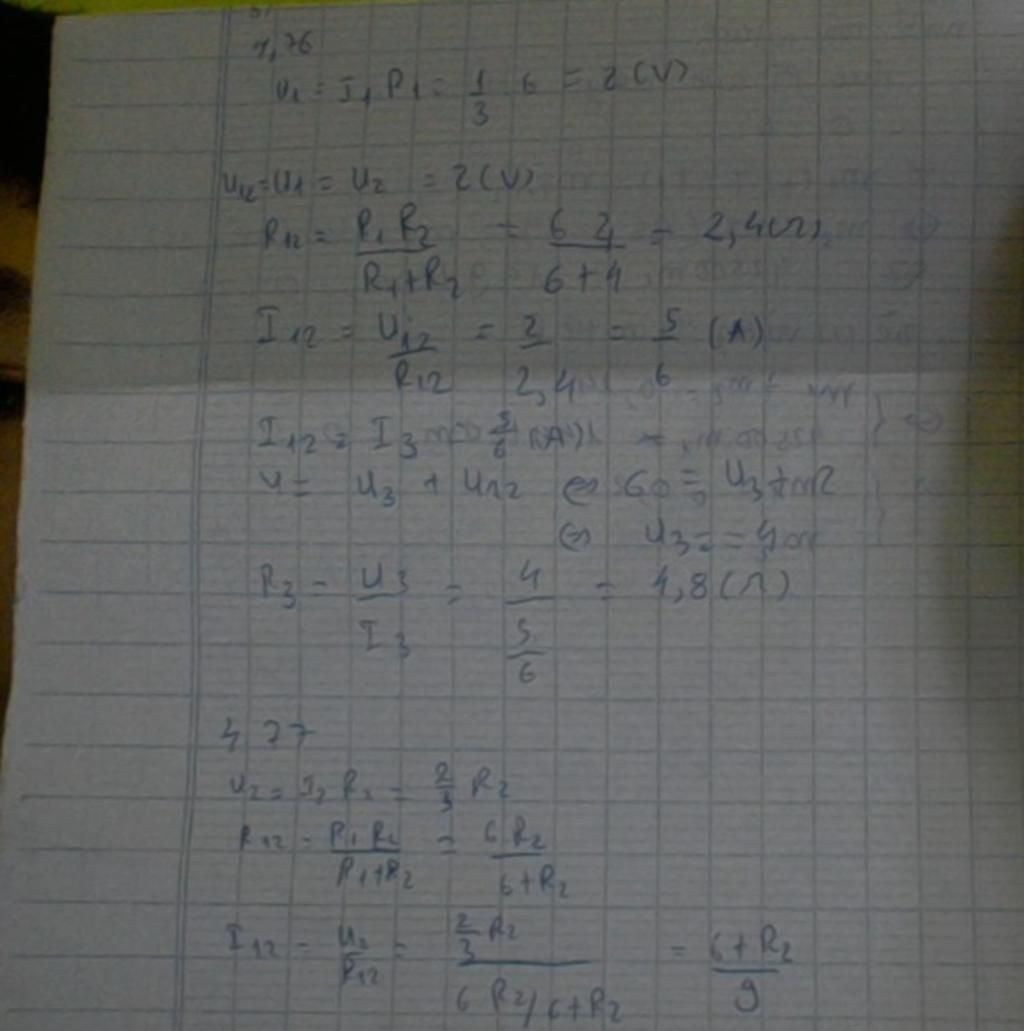 1,76
U₁ = I₁ R₁ = 1/3 6 = 2 (V)
U₁₂ = U₁ = U₂ = 2 (V)
R₁₂ = R₁ R₂ / R₁+R₂ = 6 4 / 6+4 = 2,4 (Ω)
I₁₂ = U₁₂ / R₁₂ = 2 / 2,4 = 5 / 6 (A)
I₁₂ = I₃ 5/6 (A)
U = U₃ + U₁₂ ⇔ 6 = U₃ + 2
⇔ U₃ = 4
R₃ = U₃ / I₃ = 4 / 5/6 = 4,8 (Ω)
4 77
U₂ = I₂ R₂ = 2/3 R₂
R₁₂ = R₁ R₂ / R₁+R₂ = 6 R₂ / 6+R₂
I₁₂ = U₂ / R₁₂ = 2/3 R₂ / 6 R₂/6+R₂ = 6+R₂ / 9